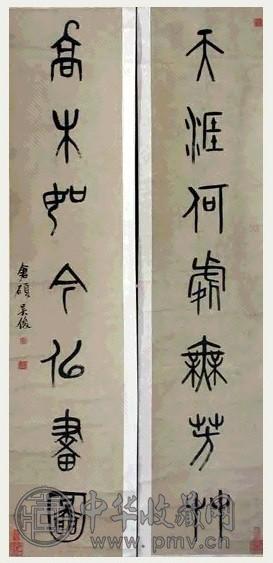 天涯何處無芳艸
喬木如今似畫圖
倉碩吳俊
中华收藏网
www.pmv.cn